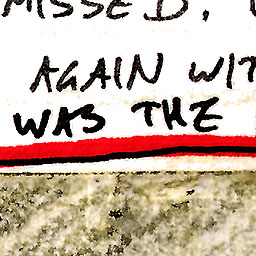 MISSED.
AGAIN WIT
WAS THE